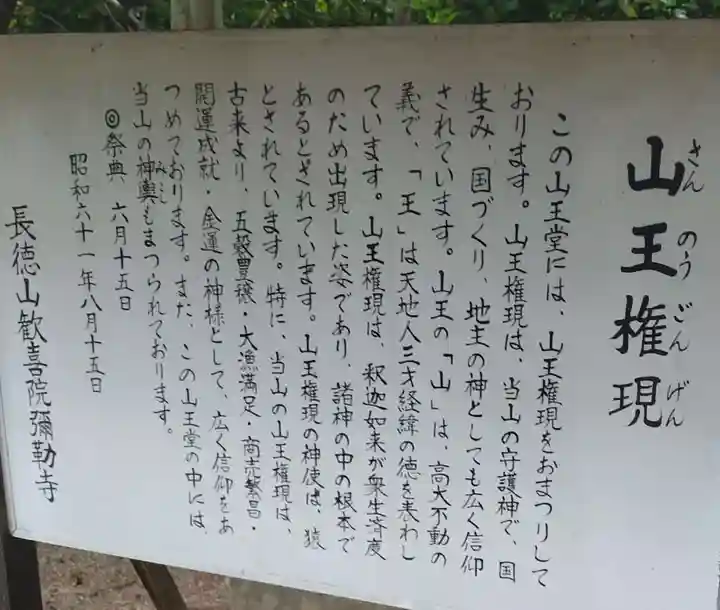 山王権現
さんのうごんげん
この山王堂には、山王権現をおまつりして
おります。山王権現は、当山の守護神で、国
生み、国づくり、地主の神としても広く信仰
されています。山王の「山」は、高大不動の
義で、「王」は天地人三才経緯の徳を表わし
ています。山王権現は、釈迦如来が衆生済度
のため出現した姿であり、諸神の中の根本で
あるとされています。山王権現の神使は、猿
とされています。特に、当山の山王権現は、
古来より、五穀豊穣・大漁満足・商売繁昌・
開運成就・金運の神様として、広く信仰をあ
つめております。また、この山王堂の中には、
当山の神輿もまつられております。
みこし
◎祭典 六月十五日
昭和六十一年八月十五日
長徳山歓喜院彌勒寺